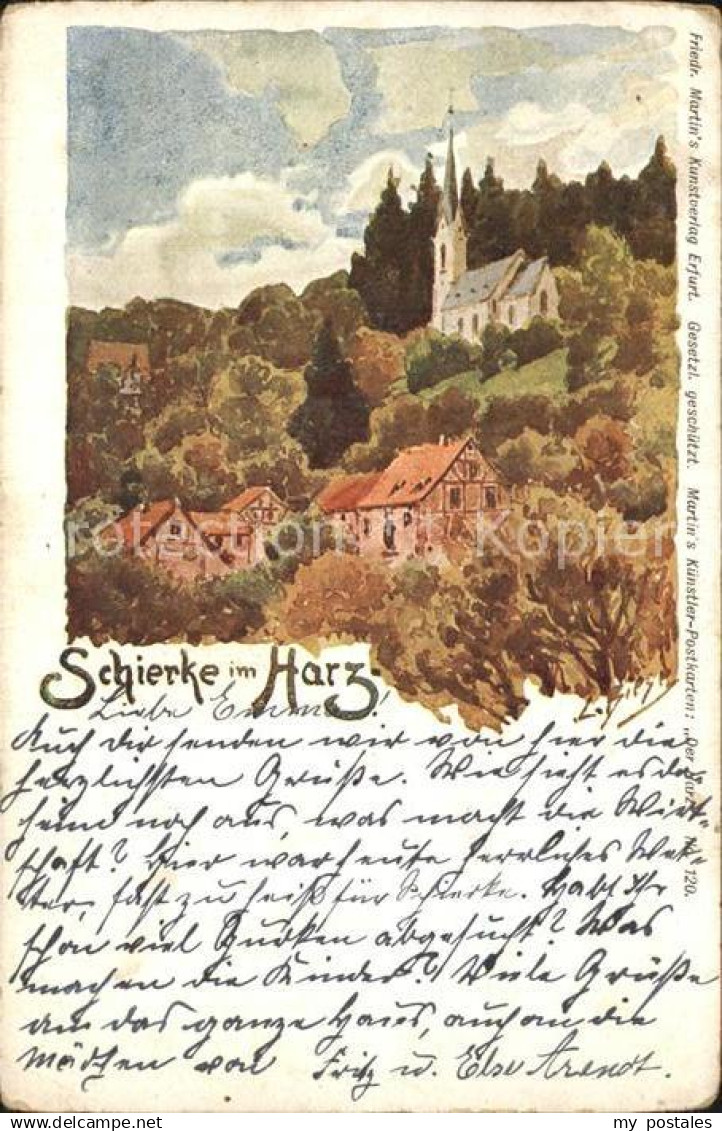 Friedr. Martin's Kunstverlag Erfurt. Gesetzl. geschützt. Martin's Künstler-Postkarten: „Der Harz" No 120.
Schierke im Harz.
Liebe Emma!
Auch dir senden wir von hier die
herzlichsten Grüße. Wie sieht es da-
heim noch aus, was macht die Wirt-
schaft? Hier war heute herrliches Wet-
ter, fast zu heiß für Schierke. Habt Ihr
schon viel Gurken abgesucht? Was
machen die Kinder? Viele Grüße
an das ganze Haus, auch an die
Mädchen von Fritz u. Else Arendt.
collection Kopier
my postales